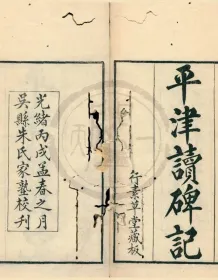 平津讀碑記
行素草堂藏板
光緒丙戌孟春之月
吳縣朱氏家塾校刊